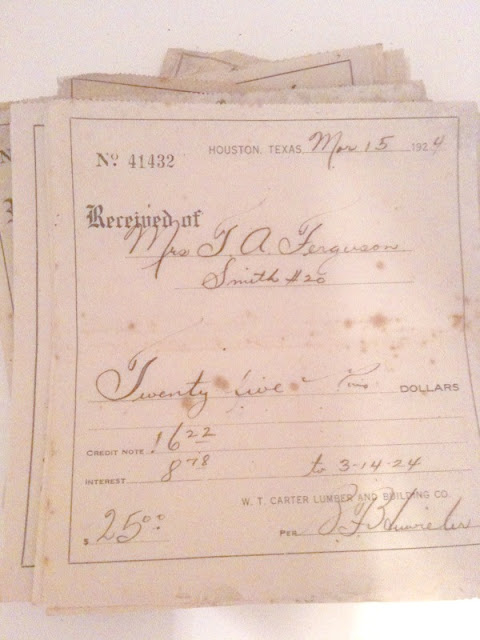 HOUSTON, TEXAS, Mar 15 1924
No 41432
Received of
Mrs T. A. Ferguson
Smith #20
Twenty five DOLLARS
CREDIT NOTE 16 22
INTEREST 8 78 to 3-14-24
W. T. CARTER LUMBER AND BUILDING CO.
$ 25 00 PER